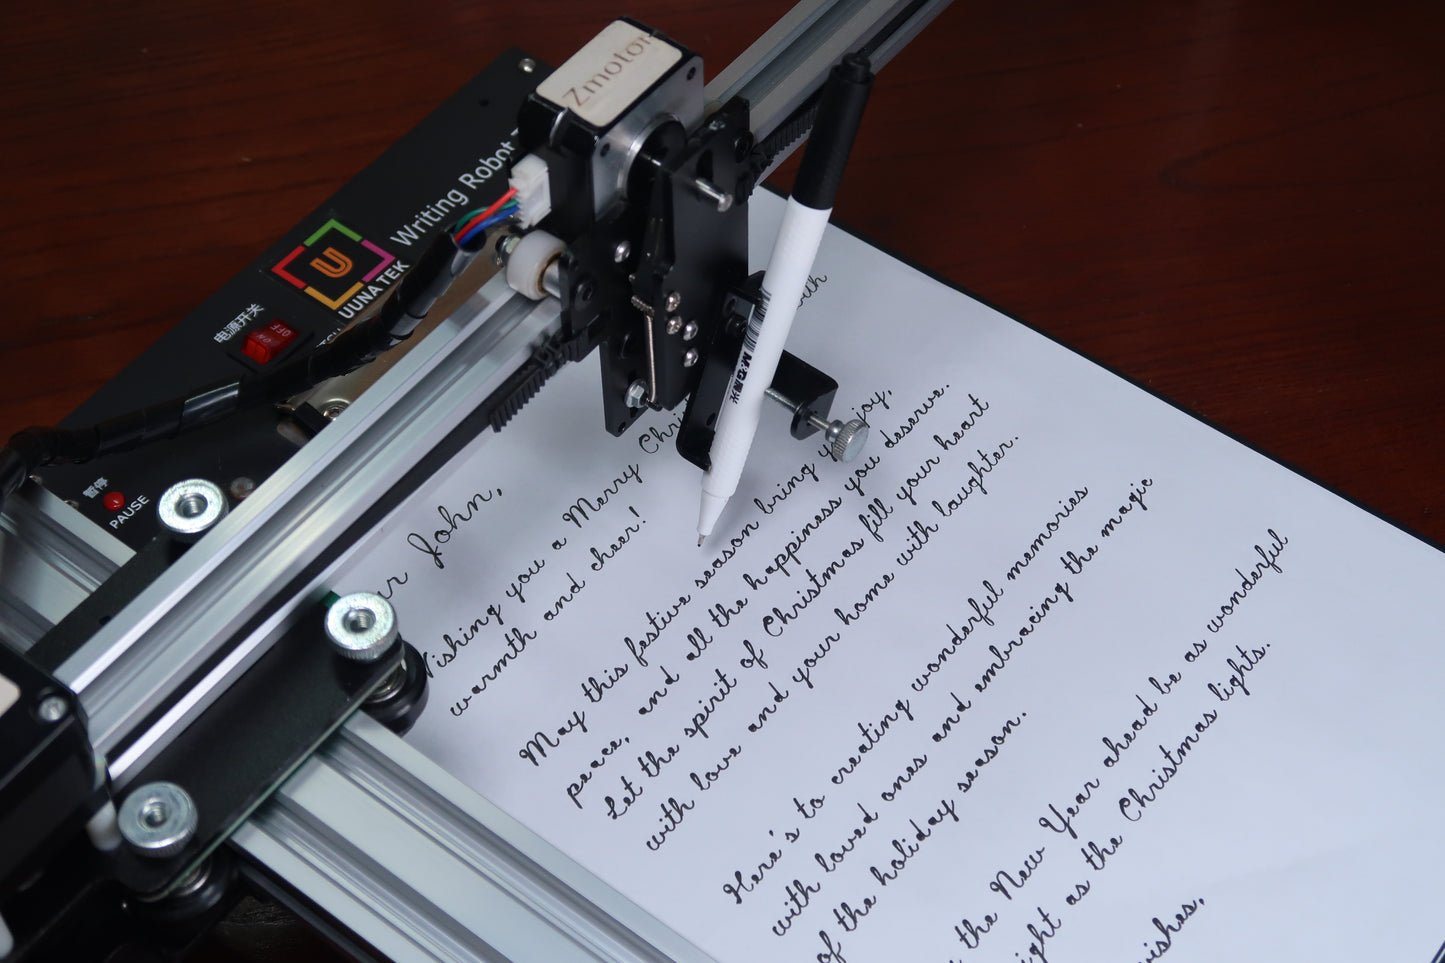 Zmotor
Writing Robot
U
UUNA TEK
电源开关
ON
OFF
暂停
PAUSE
M&G晨光
John,
Wishing you a Merry
warmth and cheer!
May this festive season bring joy,
peace, and all the happiness you deserve.
Let the spirit of Christmas fill your heart
with love and your home with laughter.
Here's to creating wonderful memories
with loved ones and embracing the magic
of the holiday season.
the New Year ahead be as wonderful
as the Christmas lights.